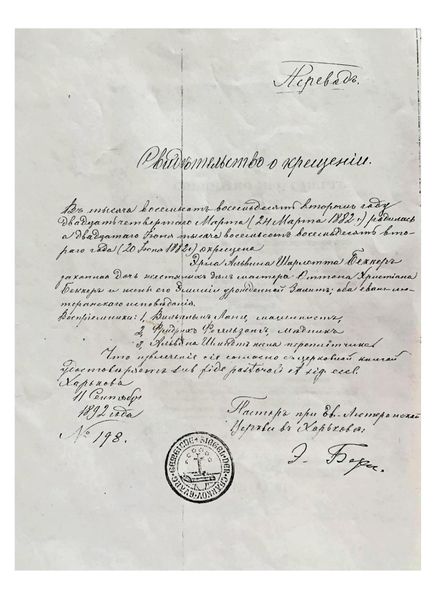 Переводъ.
Свидѣтельство о крещеніи.
Въ тысяча восемьсотъ восемьдесятъ второмъ году
двадцать четвертого Марта (24 Марта 1882 г.) родилась
а двадцатаго Іюня тысяча восемьсотъ восемьдесятъ вто-
раго года (20 Іюня 1882 г.) окрещена
Альвина Шарлотта Беккеръ
законная дочь жестяныхъ дѣлъ мастера Христіана
Беккеръ и жены его Эмиліи урожденной оба еванг.-лю-
теранскаго исповѣданія.
Воспріемники: 1. Вильгельмъ машинистъ,
2, Фридрихъ мѣдникъ
3, Альвина Шмидтъ
Что извлеченіе сіе согласно съ церковной книгой
удостовѣряетъ sub fide pastorali et sig. eccl.
Харьковъ
11 Сентября
1892 года
№ 198.
Пасторъ при Ев.-Лютеранской
Церкви въ Харьковѣ.
Э.
SIEGEL DER EVANG. GEMEINDE CHARKOV